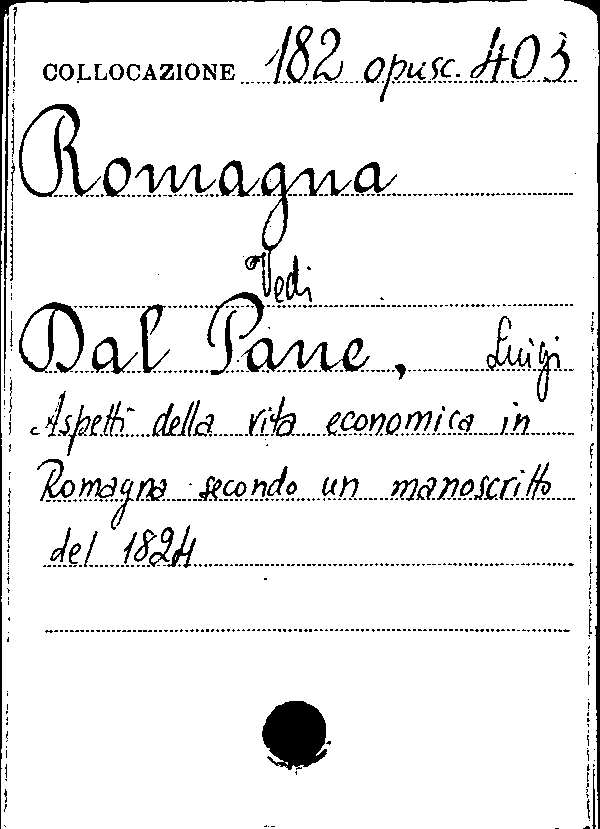 COLLOCAZIONE 182 opusc. 403
Romagna
Vedi
Dal Pane, Luigi
Aspetti della vita economica in
Romagna secondo un manoscritto
del 1824